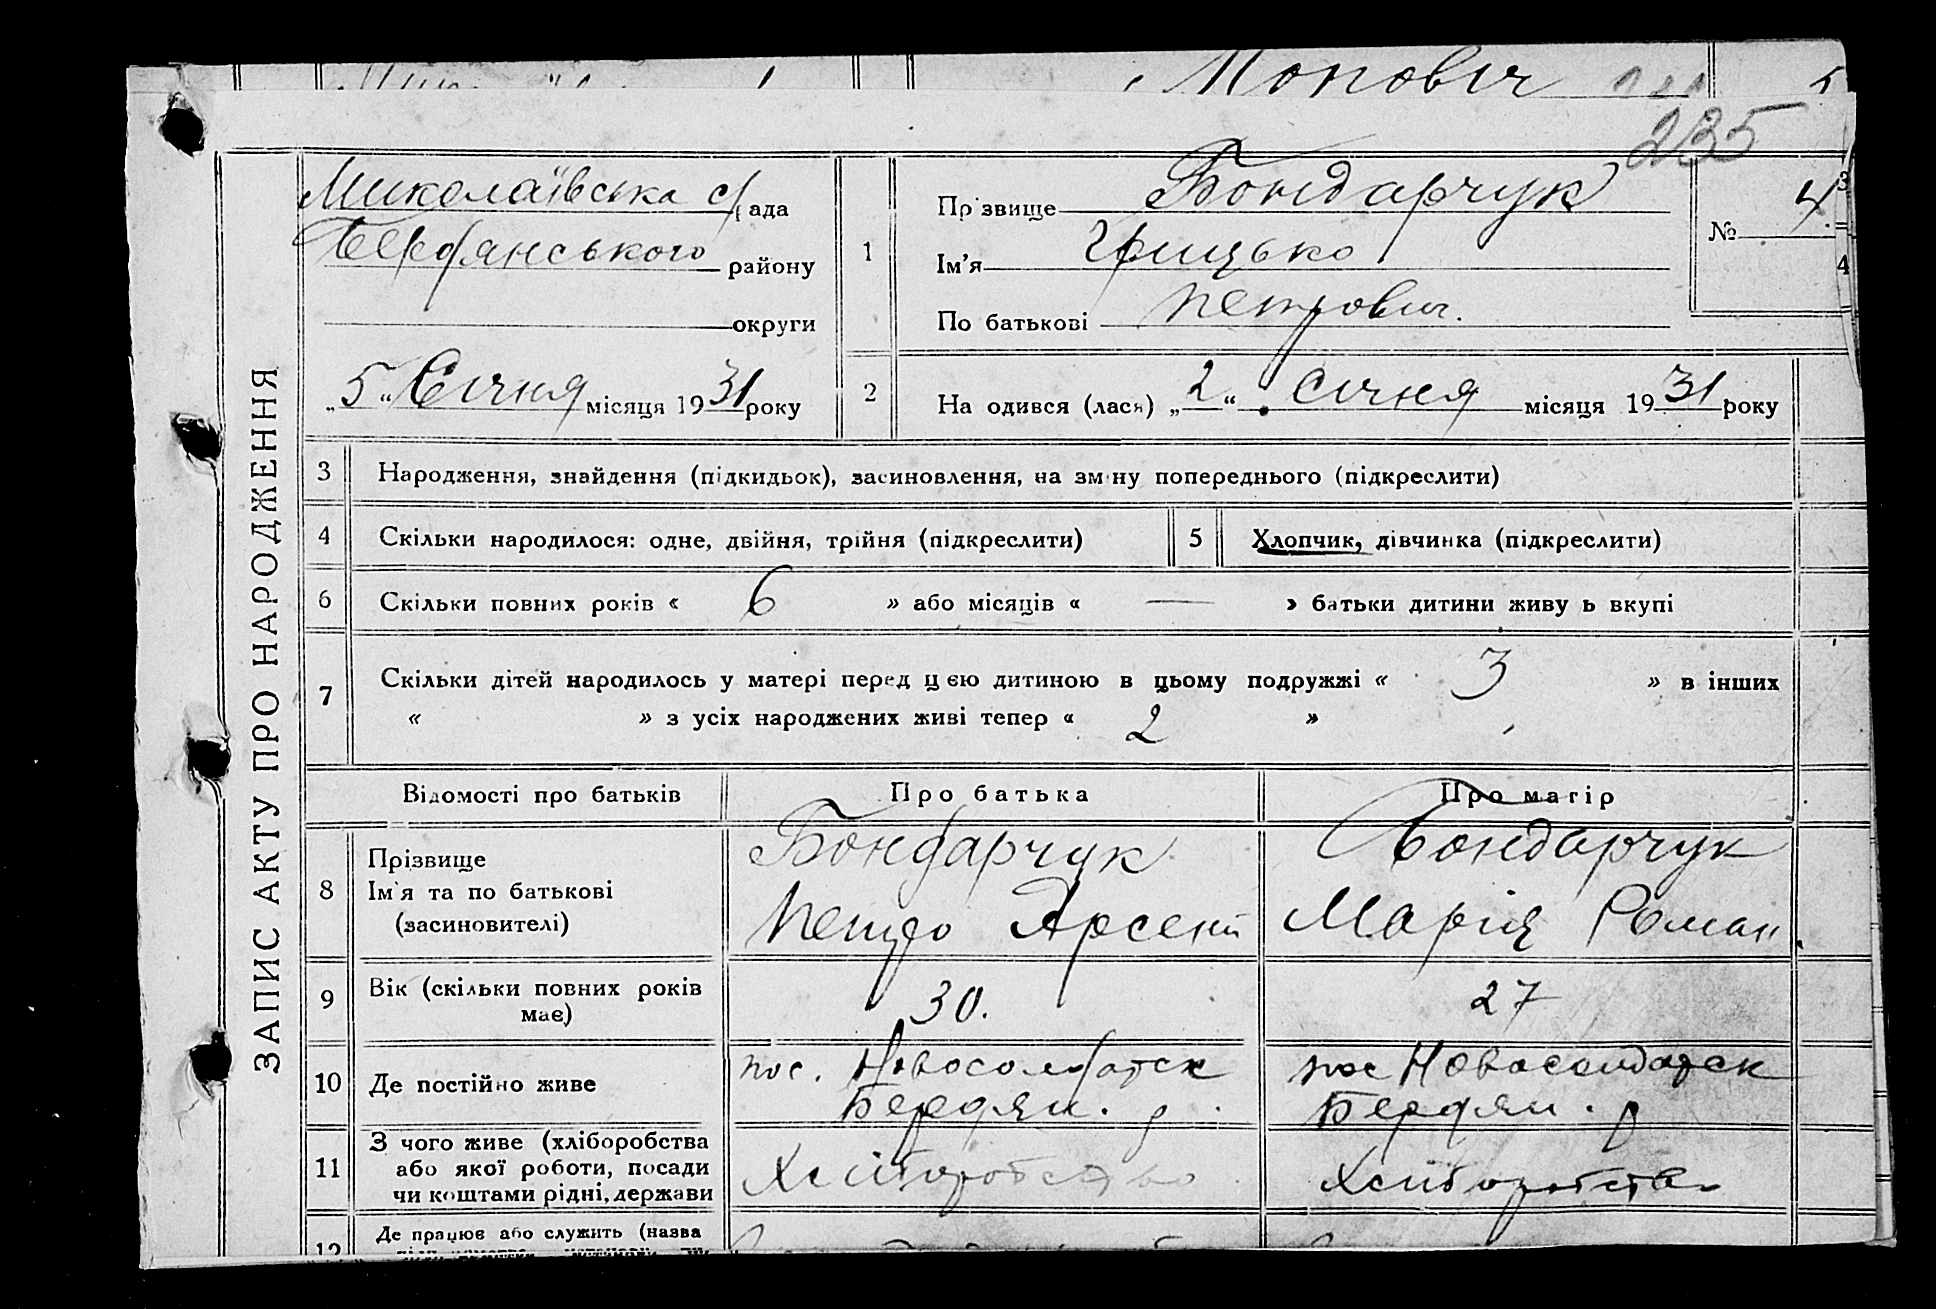 Мопович
235
ЗАПИС АКТУ ПРО НАРОДЖЕННЯ
Миколаївська с/рада
Бердянського району
округи
„5“ Січня місяця 1931 року
1
Прізвище Бондарчук
Ім’я Грицько
По батькові Петрович.
№ 4
3
4
2
На одився (лася) „2“ Січня місяця 1931 року
3 Народження, знайдення (підкидьок), засиновлення, на зміну попереднього (підкреслити)
4 Скільки народилося: одне, двійня, трійня (підкреслити)
5 Хлопчик, дівчинка (підкреслити)
6 Скільки повних років « 6 » або місяців « — » батьки дитини живу ь вкупі
7 Скільки дітей народилось у матері перед цею дитиною в цьому подружжі « 3 » в інших
« » з усіх народжених живі тепер « 2 »
Відомості про батьків Про батька Про матір
8 Прізвище
Ім’я та по батькові
(засиновителі)
Бондарчук
Петро Арсент
Бондарчук
Марія Роман.
9 Вік (скільки повних років
має)
30.
27
10 Де постійно живе
пос. Новосолдатск
Бердян. р.
пос Новосолдатск
Бердян. р
11 З чого живе (хліборобства
або якої роботи, посади
чи коштами рідні, держави
Хліборобство
Хліборобство
12 Де працює або служить (назва